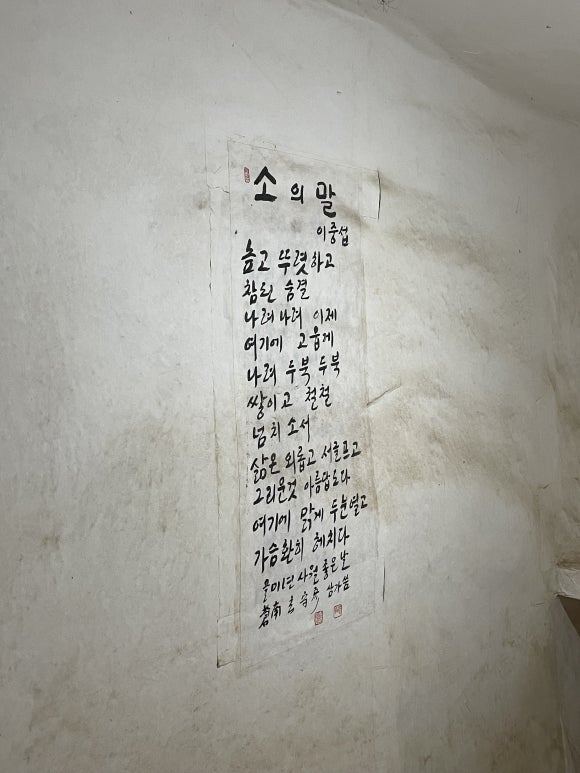 소의 말
이중섭
높고 뚜렷하고
참된 숨결
나려나려 이제
여기에 고웁게
나려 두북 두북
쌓이고 철철
넘치소서
삶은 외롭고 서글프고
그리운것 아름답도다
여기에 맑게 두눈열고
가슴환히 헤치다
을미년 사월 좋은날